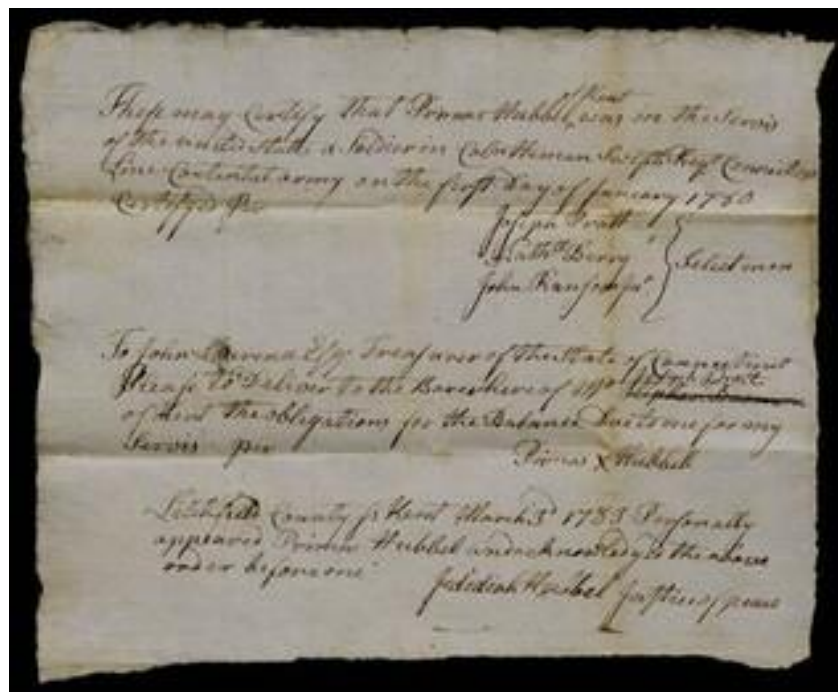 of Kent
These may Certify that Primas Hubbel was in the Servis
of the united States a Soldier in Colo Heman Swifts Regt Connecticut
Line Continental army on the first Day of January 1780
Certifyd Per
Joseph Pratt
Nathll Berry
John Ransom Jur
Selectmen
To John Lawrence Esqr Treasurer of the State of Connecticut
Please to Deliver to the Barer hereof Mr
of Kent the obligations for the Balance Due to me for my
Servis per
Primas X Hubbel
Litchfield County ss Kent March 3d 1783 Personally
appeared Primas Hubbel and acknowledged the above
order before me
Jedediah Hubbel Justice of peace